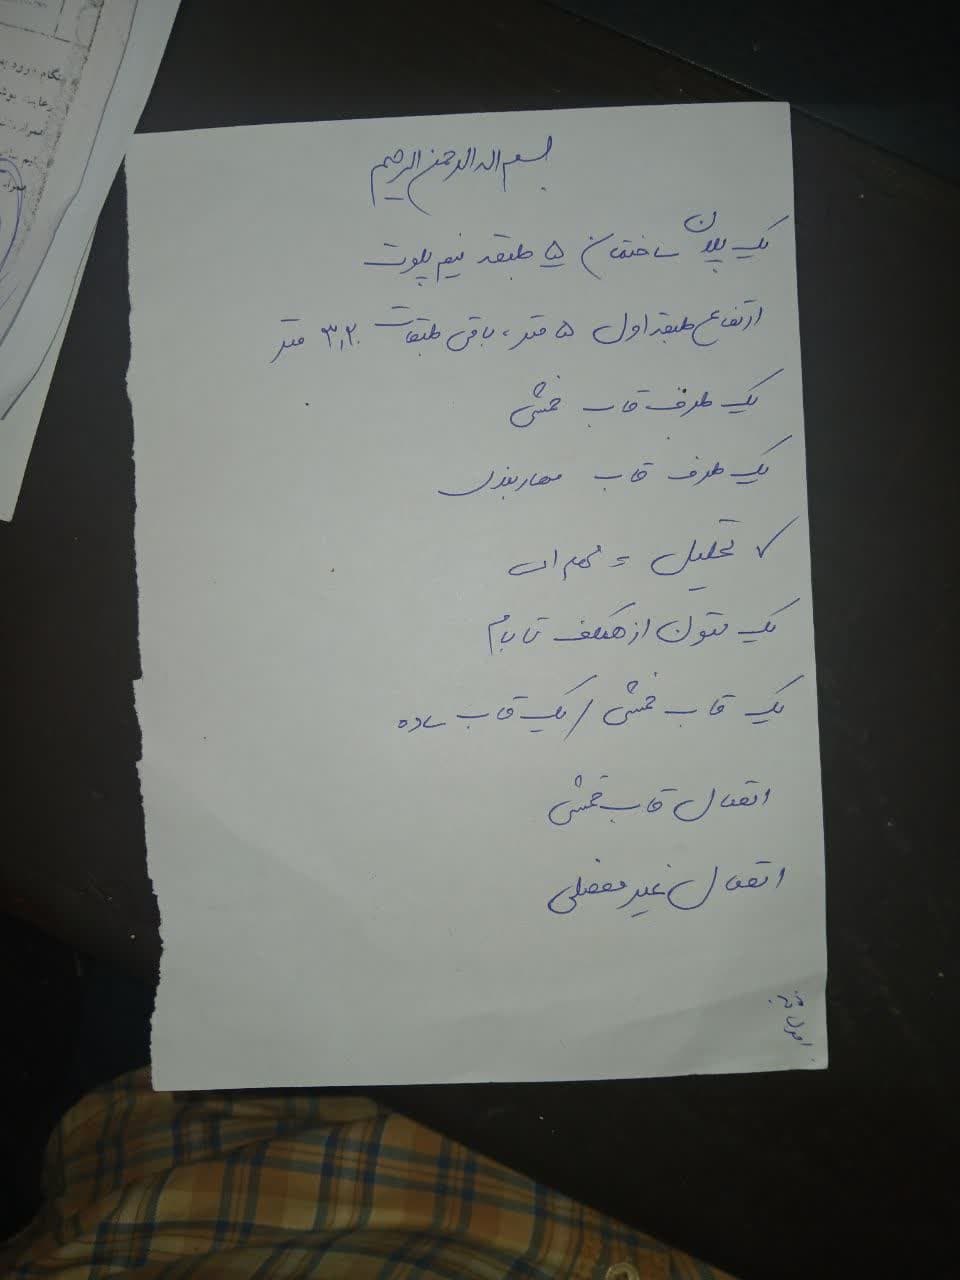 بسم الله الرحمن الرحیم
یک پلان ساختمان ۵ طبقه نیم پلوت
ارتفاع طبقه اول ۵ متر، باقی طبقات ۳٫۲۰ متر
یک طرف قاب خمشی
یک طرف قاب مهاربندی
✓ تحلیل
یک ستون از همکف تا بام
یک قاب خمشی / یک قاب ساده
اتصال قاب خمشی
اتصال غیر مفصلی